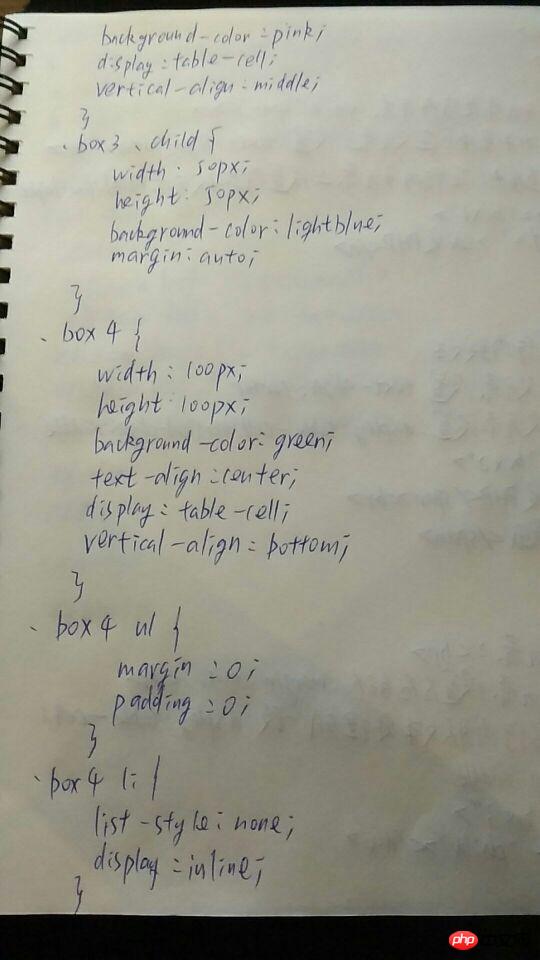 background-color:pink;
display:table-cell;
vertical-align:middle;
}
.box3 .child {
width: 50px;
height: 50px;
background-color:lightblue;
margin:auto;
}
.box4 {
width:100px;
height:100px;
background-color:green;
text-align:center;
display:table-cell;
vertical-align:bottom;
}
.box4 ul {
margin:0;
padding:0;
}
.box4 li {
list-style:none;
display:inline;
}
php